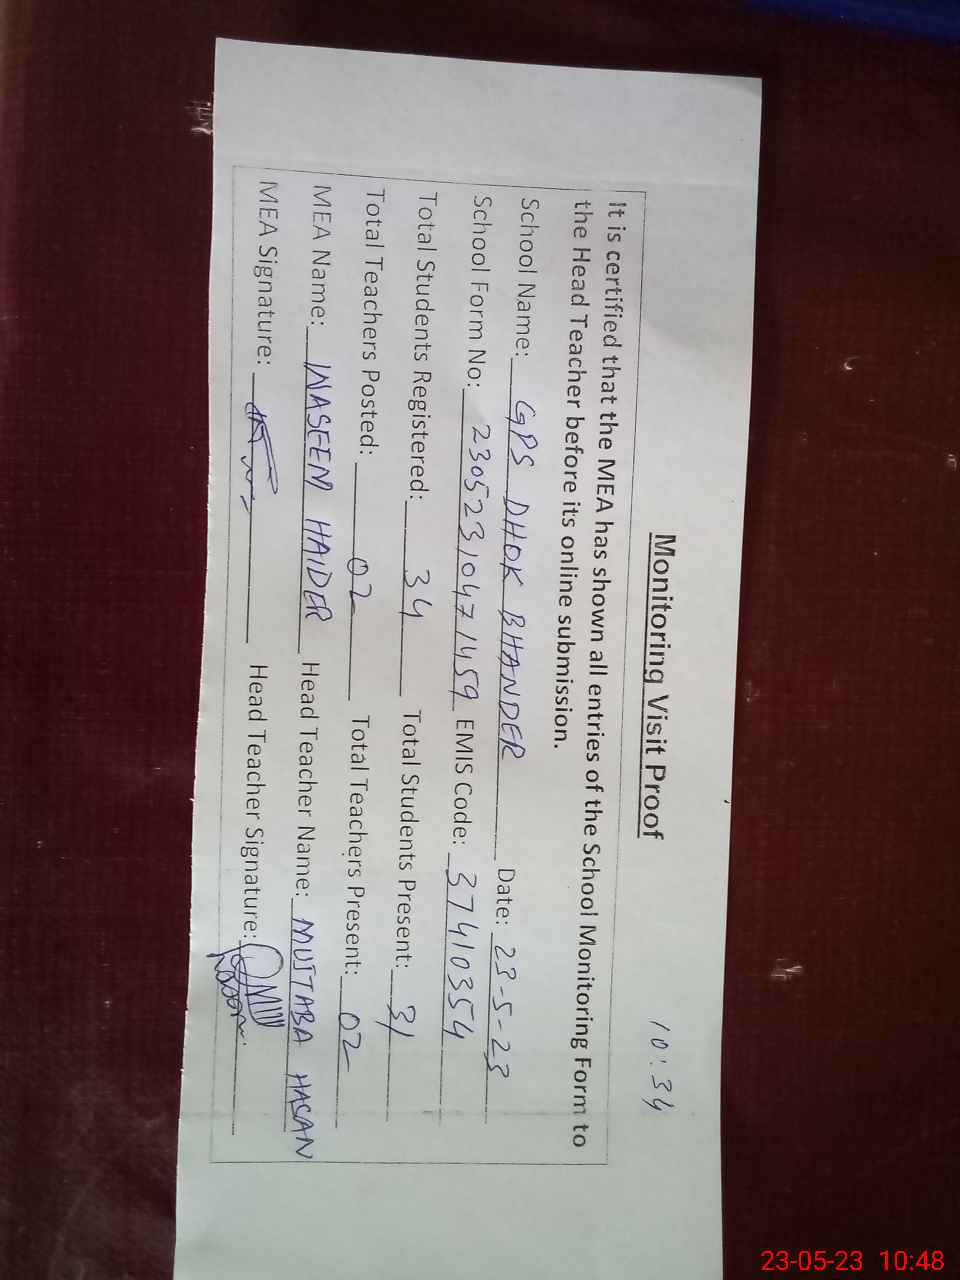 Monitoring Visit Proof
10:34
It is certified that the MEA has shown all entries of the School Monitoring Form to
the Head Teacher before its online submission.
School Name: GPS DHOK BHANDER Date: 23-5-23
School Form No: 23052310471459 EMIS Code: 37410354
Total Students Registered: 34 Total Students Present: 31
Total Teachers Posted: 02 Total Teachers Present: 02
MEA Name: WASEEM HAIDER Head Teacher Name: MUJTABA HASAN
MEA Signature: Head Teacher Signature:
23-05-23 10:48